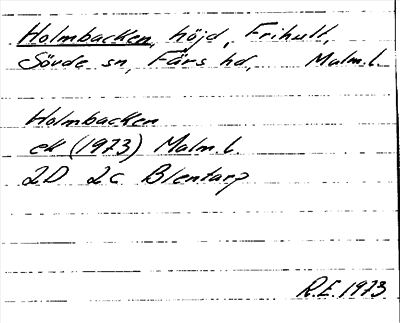 Holmbacken, höjd, Frihult,
Sövde sn, Färs hd, Malm.l.
Holmbacken
ek (1973) Malm.l.
2D 2c Blentarp
R.E. 1973